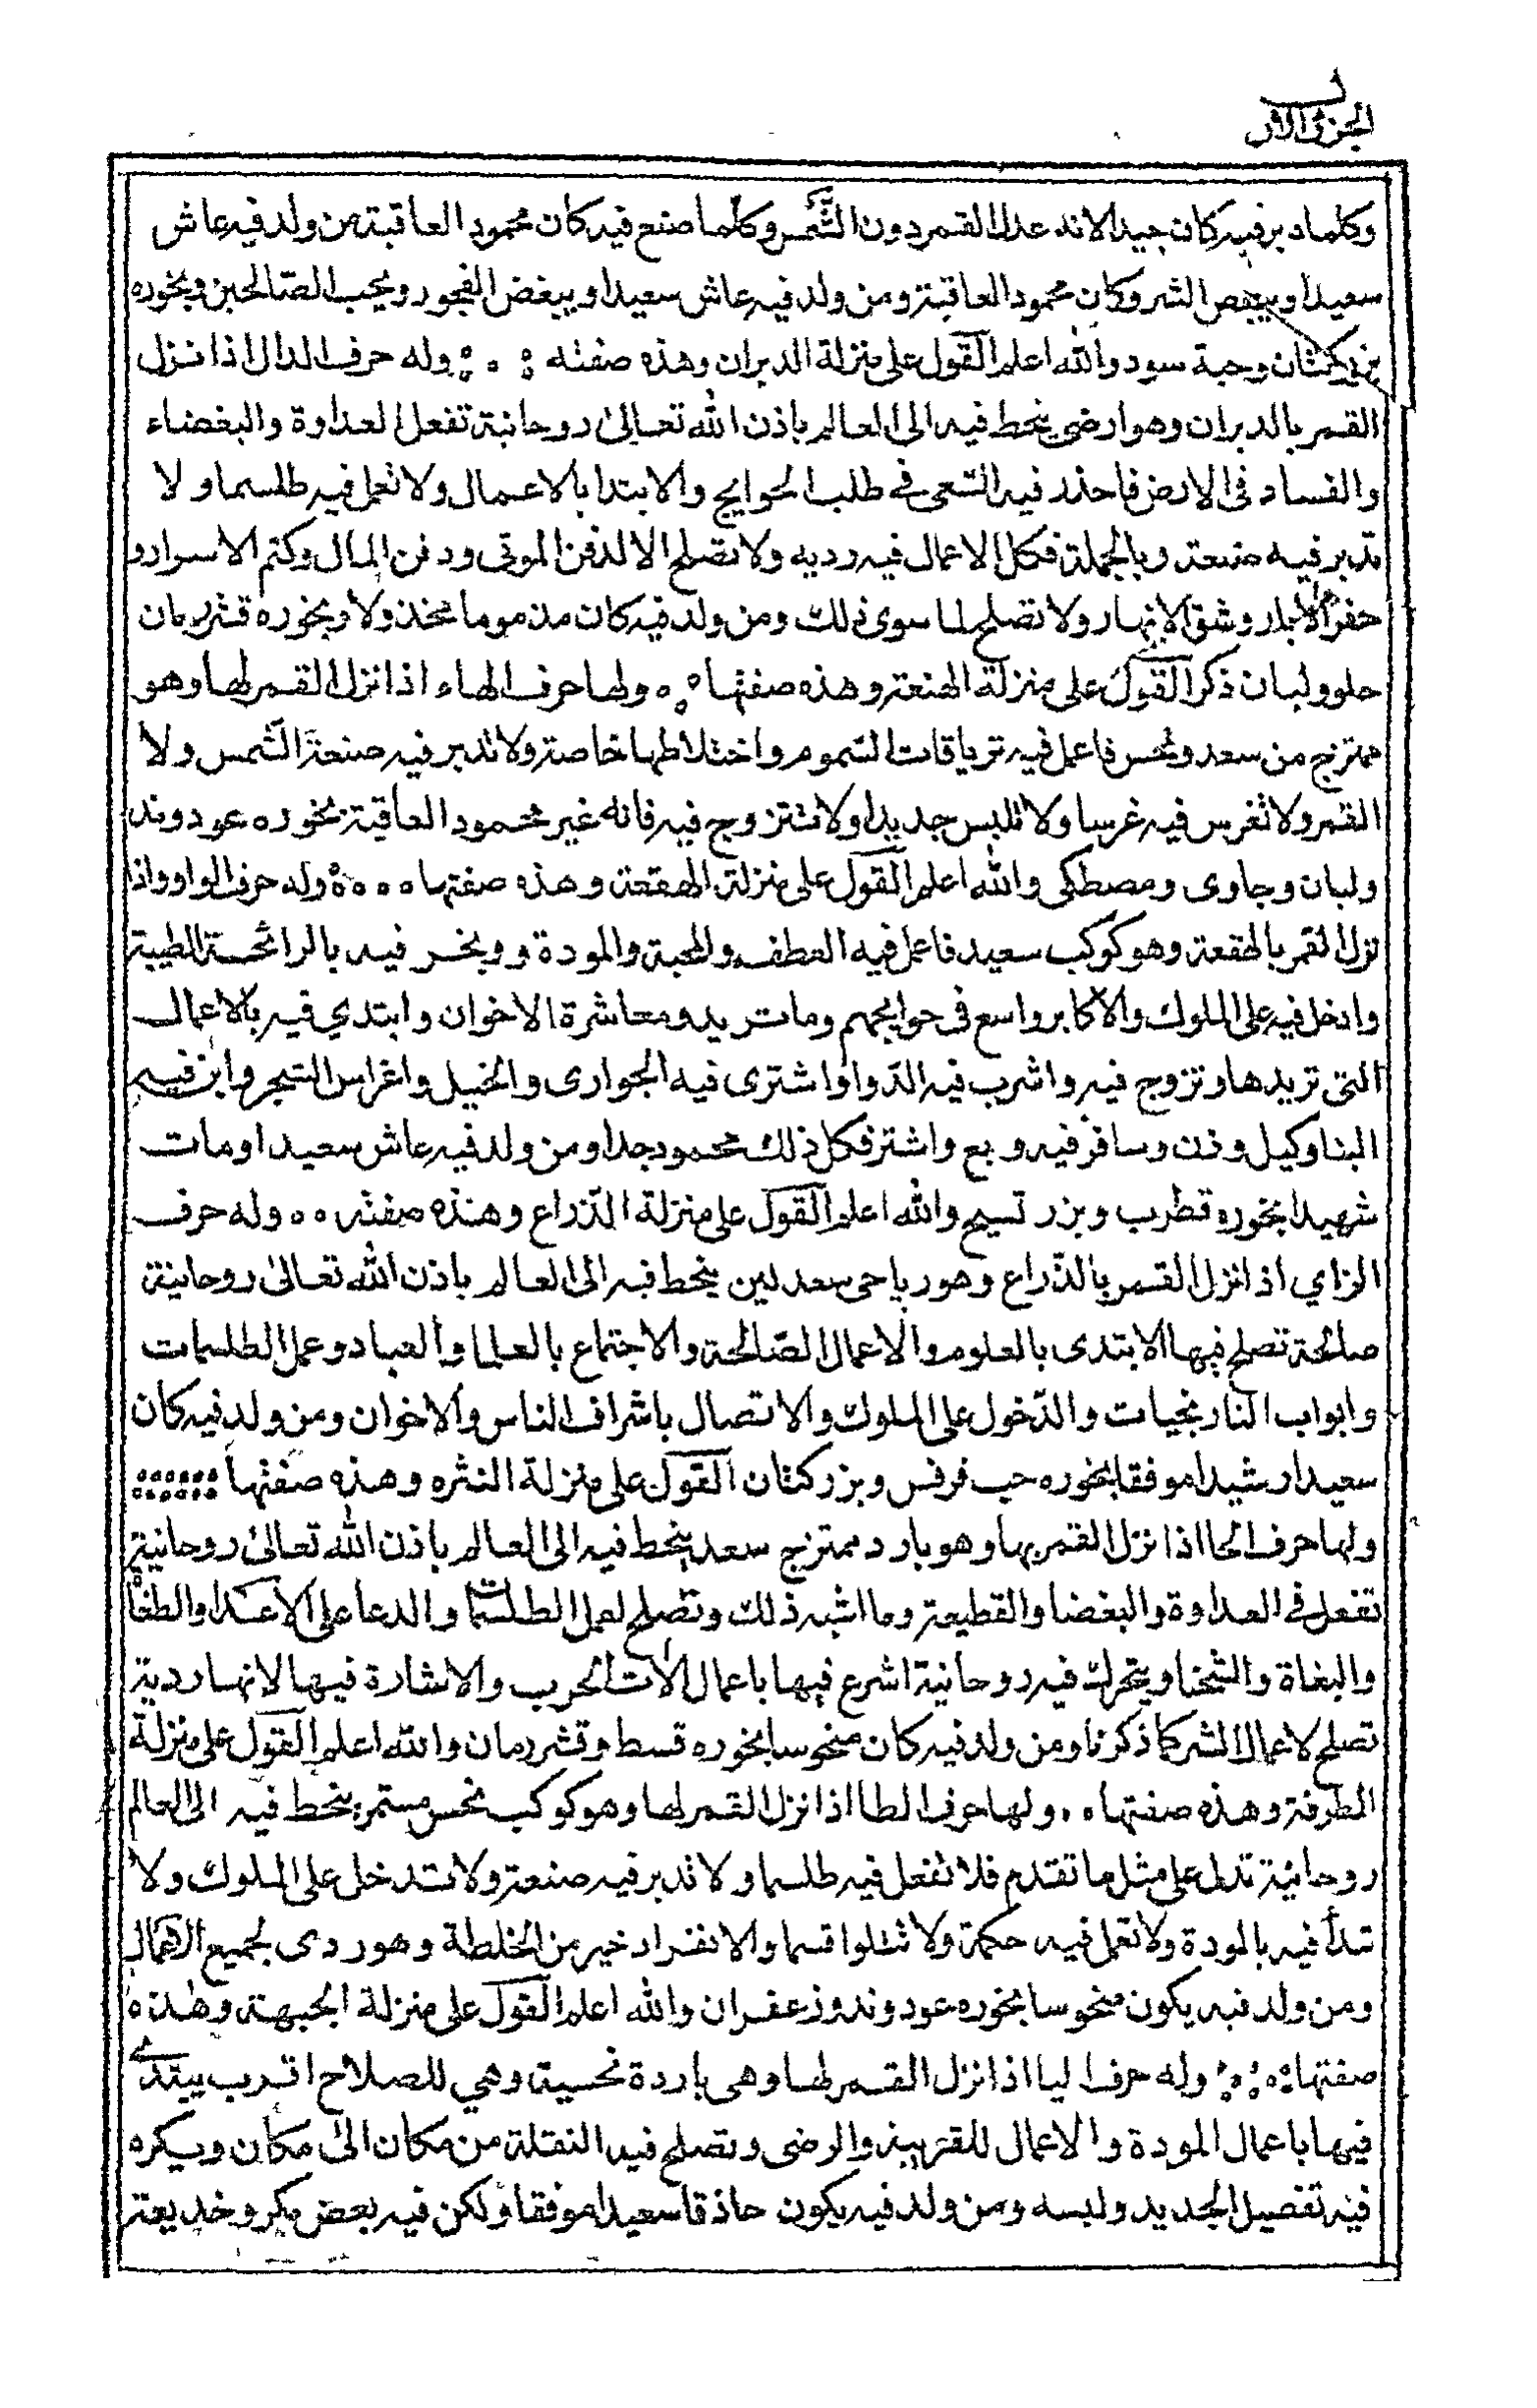 الجزء الاول
وكلما دبر فيه كان جيدا لانه عدل القمر دون الشمس وكلما صنع فيه كان محمود العاقبة من ولد فيه عاش
سعيدا ويبغض الشر وكان محمود العاقبة ومن ولد فيه عاش سعيدا ويبغض الفجور ويحب الصالحين وبخوره
بزر كتان وحبة سودو الله اعلم القول على منزلة الدبران وهذه صفته ولـه حرف الدال اذا نزل
القمر بالدبران وهو ارضى ينحط فيه الى العالم باذن الله تعالى روحانية تفعل العداوة والبغضاء
والفساد فى الارض فاحذر فيه السعى فے طلب الحوايج والابتدا بالاعمال ولا تعمل فيه طلسما ولا
تدبر فيه صنعة وبالجملة فكل الاعمال فيه رديه ولا تصلح الا لدفن الموتى ودفن المال وكتم الاسرار و
حفر الابار وشق الانهار ولا تصلح لما سوى ذلك ومن ولد فيه كان مذموما مخذولا وبخوره قشر رمان
حلو ولبان ذكر القول على منزلة الهنعة وهذه صفتها ولها حرف الهاء اذا نزل القمر لها وهو
ممتزج من سعد ونحس فاعمل فيه ترياقات السموم واختلاطها خاصة ولا تدبر فيه صنعة الشمس ولا
القمر ولا تغرس فيه غرسا ولا تلبس جديدا ولا تتزوج فيه فانه غير محمود العاقبة بخوره عود وند
ولبان وجاوى ومصطكى والله اعلم القول على منزلة الهقعة وهذه صفتها وله حرف الواو واذا
نزل القمر بالهقعة وهو كوكب سعيد فاعمل فيه العطف والمحبة والمودة و ويبخر فيه بالرائحة الطيبة
وادخل فيه على الملوك والاكابر واسع فى حوايجهم وما تريد ومعاشرة الاخوان وابتدي فيه بالاعمال
التى تريدها وتزوج فيه واشرب فيه الدواو اشترى فيه الجوارى والخيل واغراس الشجر وابن فيه
البنا وكيل وزن وسافر فيه وبع واشتر فكل ذلك محمود جدا ومن ولد فيه عاش سعيدا ومات
شهيدا بخوره قطرب وبزر تسيح والله اعلم القول على منزلة الذراع وهذه صفته وله حرف
الزاي اذا نزل القمر بالذراع وهو رياحى سعد لين ينحط فيه الى العالم باذن الله تعالى روحانية
صالحة تصلح فيها الابتدى بالعلوم والاعمال الصالحة والاجتماع بالعلما والعباد وعمل الطلسمات
وابواب النارنجيات والدخول على الملوك والاتصال باشراف الناس والاخوان ومن ولد فيه كان
سعيدا رشيدا موفقا بخوره حب فرفس وبزر كتان القول على منزلة النثره وهذه صفتها
ولها حرف الحا اذا نزل القمر بها وهو بارد ممتزج سعد ينحط فيه الى العالم باذن الله تعالى روحانية
تفعل فے العداوة والبغضا والقطيعة وما اشبه ذلك وتصلح لعمل الطلسمات والدعا على الاعدا والطغاة
والبغاة والشحنا ويتحرك فيه روحانية اشرع فيها باعمال الات الحرب والاشارة فيها لانها ردية
تصلح لاعمال الشر كما ذكرنا ومن ولد فيه كان منحوسا بخوره قسط وقشر رمان والله اعلم القول على منزلة
الطرفة وهذه صفتها ولها حرف الطا اذا نزل القمر لها وهو كوكب نحس مستمر ينحط فيه الى العالم
روحانية تدل على مثل ما تقدم فلا تفعل فيه طلسما ولا تدبر فيه صنعة ولا تدخل على الملوك ولا
تبدأ فيه بالمودة ولا تعمل فيه حكمة ولا تتلوا قسما والانفراد خير من الخلطة وهو ردى لجميع الاعمال
ومن ولد فيه يكون منحوسا بخوره عود وند وزعفران والله اعلم القول على منزلة الجبهة وهذه
صفتها وله حرف ليا اذا نزل القمر لها وهى باردة نحسية وهي للصلاح اقرب يبتدے
فيها باعمال المودة والاعمال للقريبة والرضى وتصلح فيه النقلة من مكان الى مكان ويكره
فيه تفصيل الجديد ولبسه ومن ولد فيه يكون حاذقا سعيدا موفقا ولكن فيه بعض مكر وخديعة